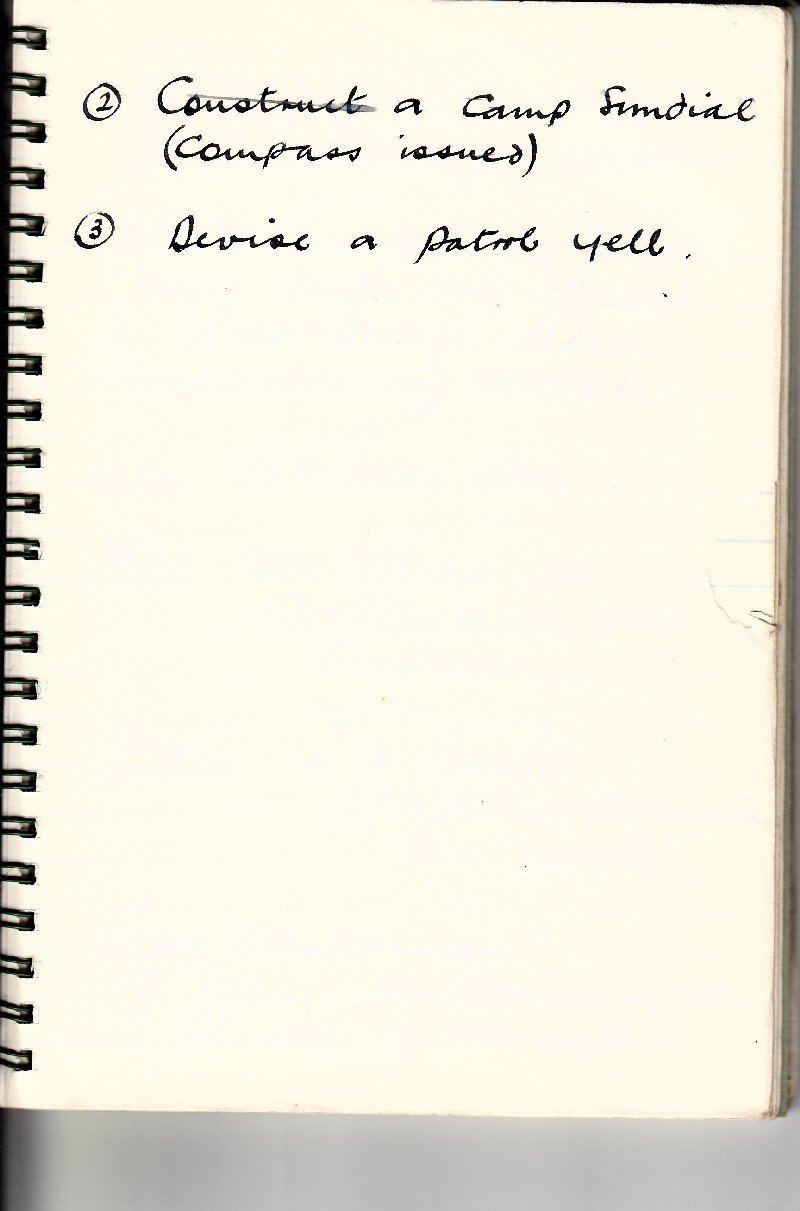 ② Construct a Camp Sundial
(Compass issued)
③ Devise a patrol yell.